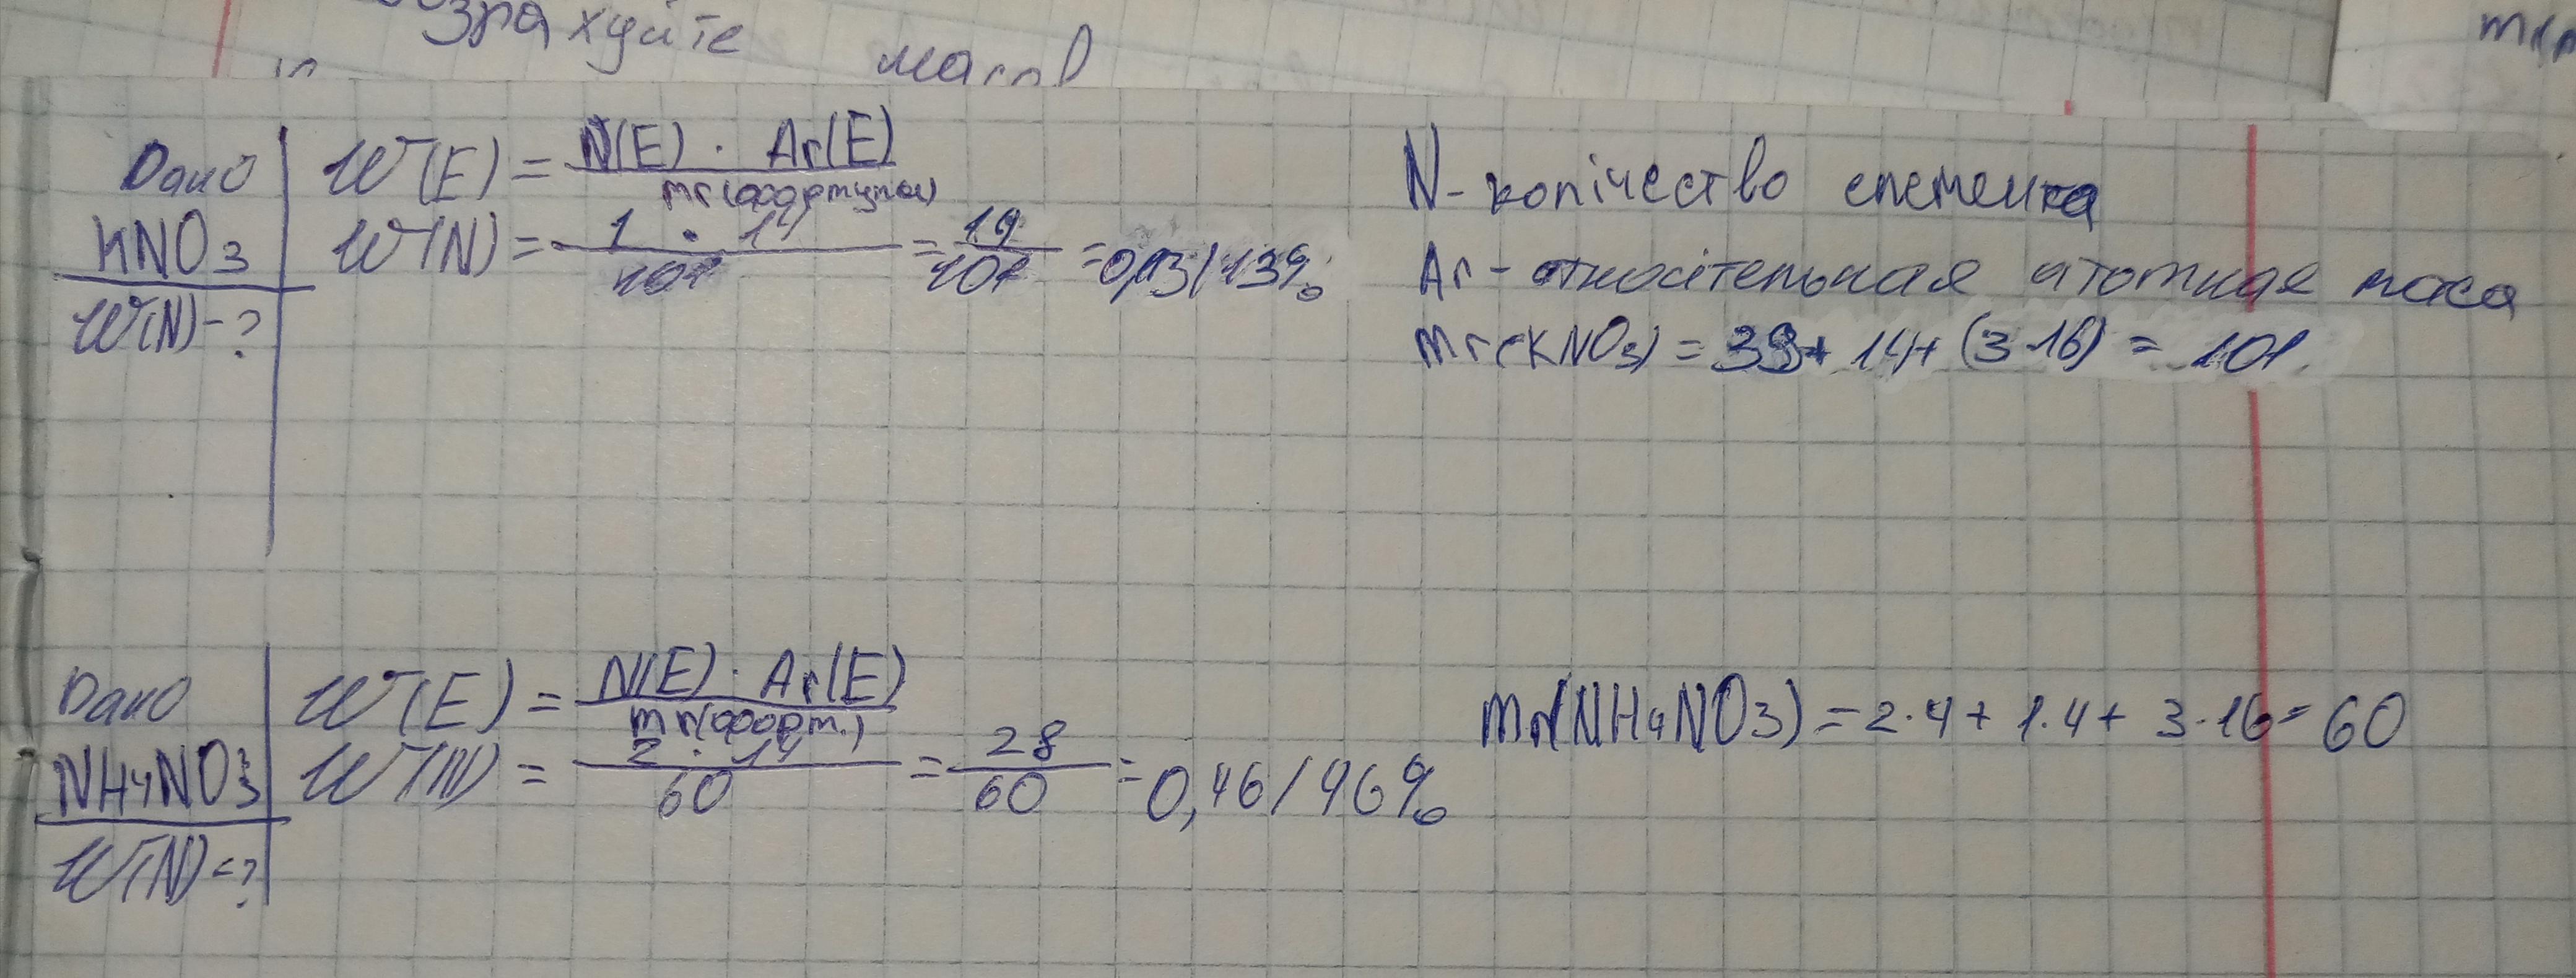 зрахуйте
Дано
KNO3
W(N)-?
W(E) = N(E) · Ar(E) / mr(формула)
W(N) = 1 · 14 / 101 = 19 / 101 = 0,13/13%
N - количество елемента
Ar - относительная атомная маса
mr(KNO3) = 39 + 14 + (3·16) = 101
Дано
NH4NO3
W(N)-?
W(E) = N(E) · Ar(E) / mr(форм.)
W(N) = 2 · 14 / 60 = 28 / 60 = 0,46/46%
mr(NH4NO3) = 2·4 + 1·4 + 3·16 = 60